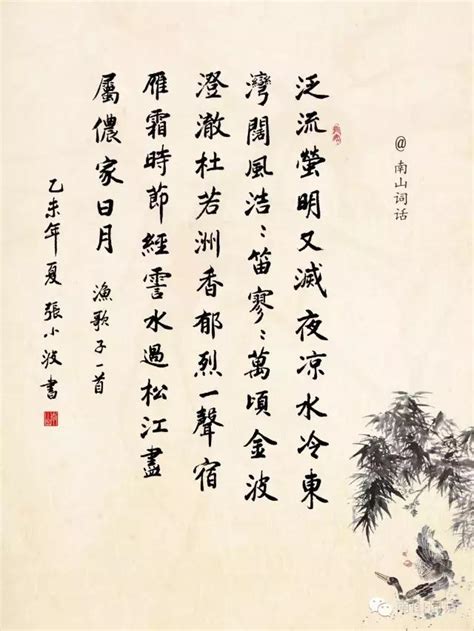 @南山词话
泛流螢明又滅夜凉水冷東
灣闊風浩〻笛寥〻萬頃金波
澄澈杜若洲香郁烈一聲宿
雁霜時節經霅水過松江盡
屬儂家日月 漁歌子一首
乙未年夏 張小波書